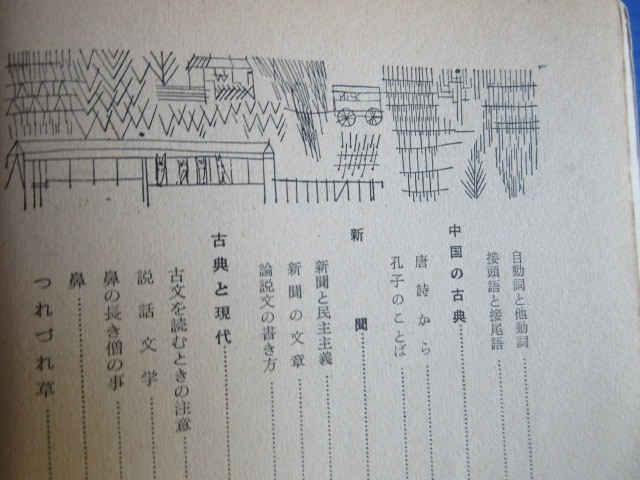 自動詞と他動詞
接頭語と接尾語
中国の古典
唐詩から
孔子のことば
新聞
新聞と民主主義
新聞の文章
論説文の書き方
古典と現代
古文を読むときの注意
説話文学
鼻の長き僧の事
鼻
つれづれ草
MILK